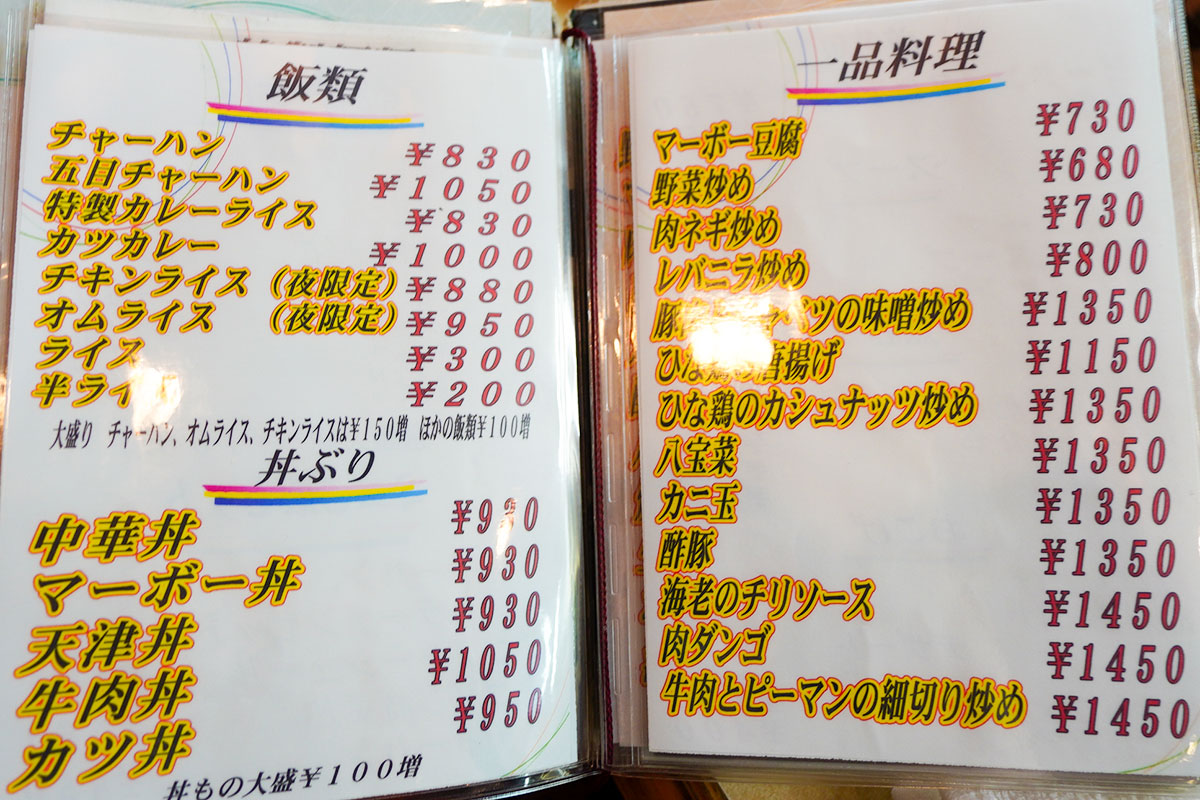 飯類
チャーハン ¥830
五目チャーハン ¥1050
特製カレーライス ¥830
カツカレー ¥1000
チキンライス (夜限定) ¥880
オムライス (夜限定) ¥950
ライス ¥300
半ライ ¥200
大盛り チャーハン、オムライス、チキンライスは¥150増 ほかの飯類¥100増
丼ぶり
中華丼 ¥930
マーボー丼 ¥930
天津丼 ¥930
牛肉丼 ¥1050
カツ丼 ¥950
丼もの大盛¥100増
一品料理
マーボー豆腐 ¥730
野菜炒め ¥680
肉ネギ炒め ¥730
レバニラ炒め ¥800
豚 ベツの味噌炒め ¥1350
ひな鶏の唐揚げ ¥1150
ひな鶏のカシュナッツ炒め ¥1350
八宝菜 ¥1350
カニ玉 ¥1350
酢豚 ¥1350
海老のチリソース ¥1450
肉ダンゴ ¥1450
牛肉とピーマンの細切り炒め ¥1450